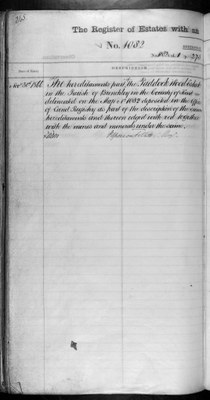 263
The Register of Estates with an
No. 1082
DESCRIPTION
Date of Entry.
The hereditaments part of the Paddock Wood Estate
in the Parish of Brenchley in the County of Kent
delineated on the Map No 1082 deposited in the Office
of Land Registry as part of the description of the same
hereditaments and thereon edged with red together
with the mines and minerals under the same.